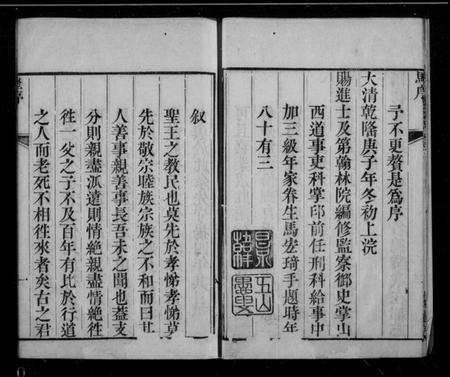 予不更贅是為序
大清乾隆庚子年冬初上浣
賜進士及第翰林院編修監察御史掌山
西道事吏科掌印前任刑科給事中
加三級年家眷生馬宏琦手題時年
八十有三
叙
聖王之教民也莫先於孝悌孝悌莫
先於敬宗睦族宗族之不和而曰其
人善事親善事長吾未之聞也蓋支
分則親盡派遠則情絕親盡情絕徃
徃一父之子不及百年有比於行道
之人而老死不相徃來者矣古之君